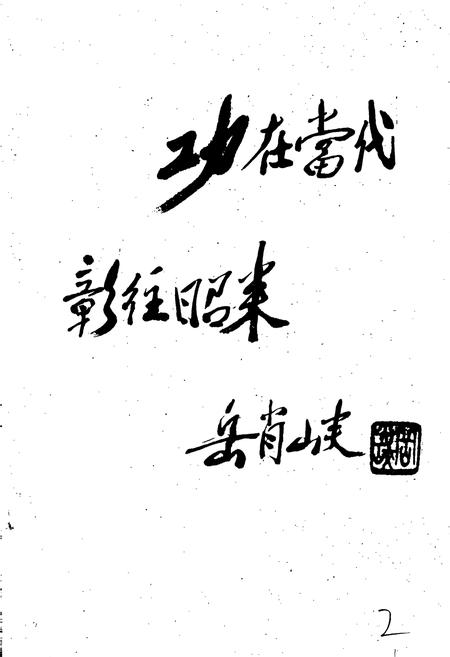 功在當代
彰往昭来
岳肖峡
2